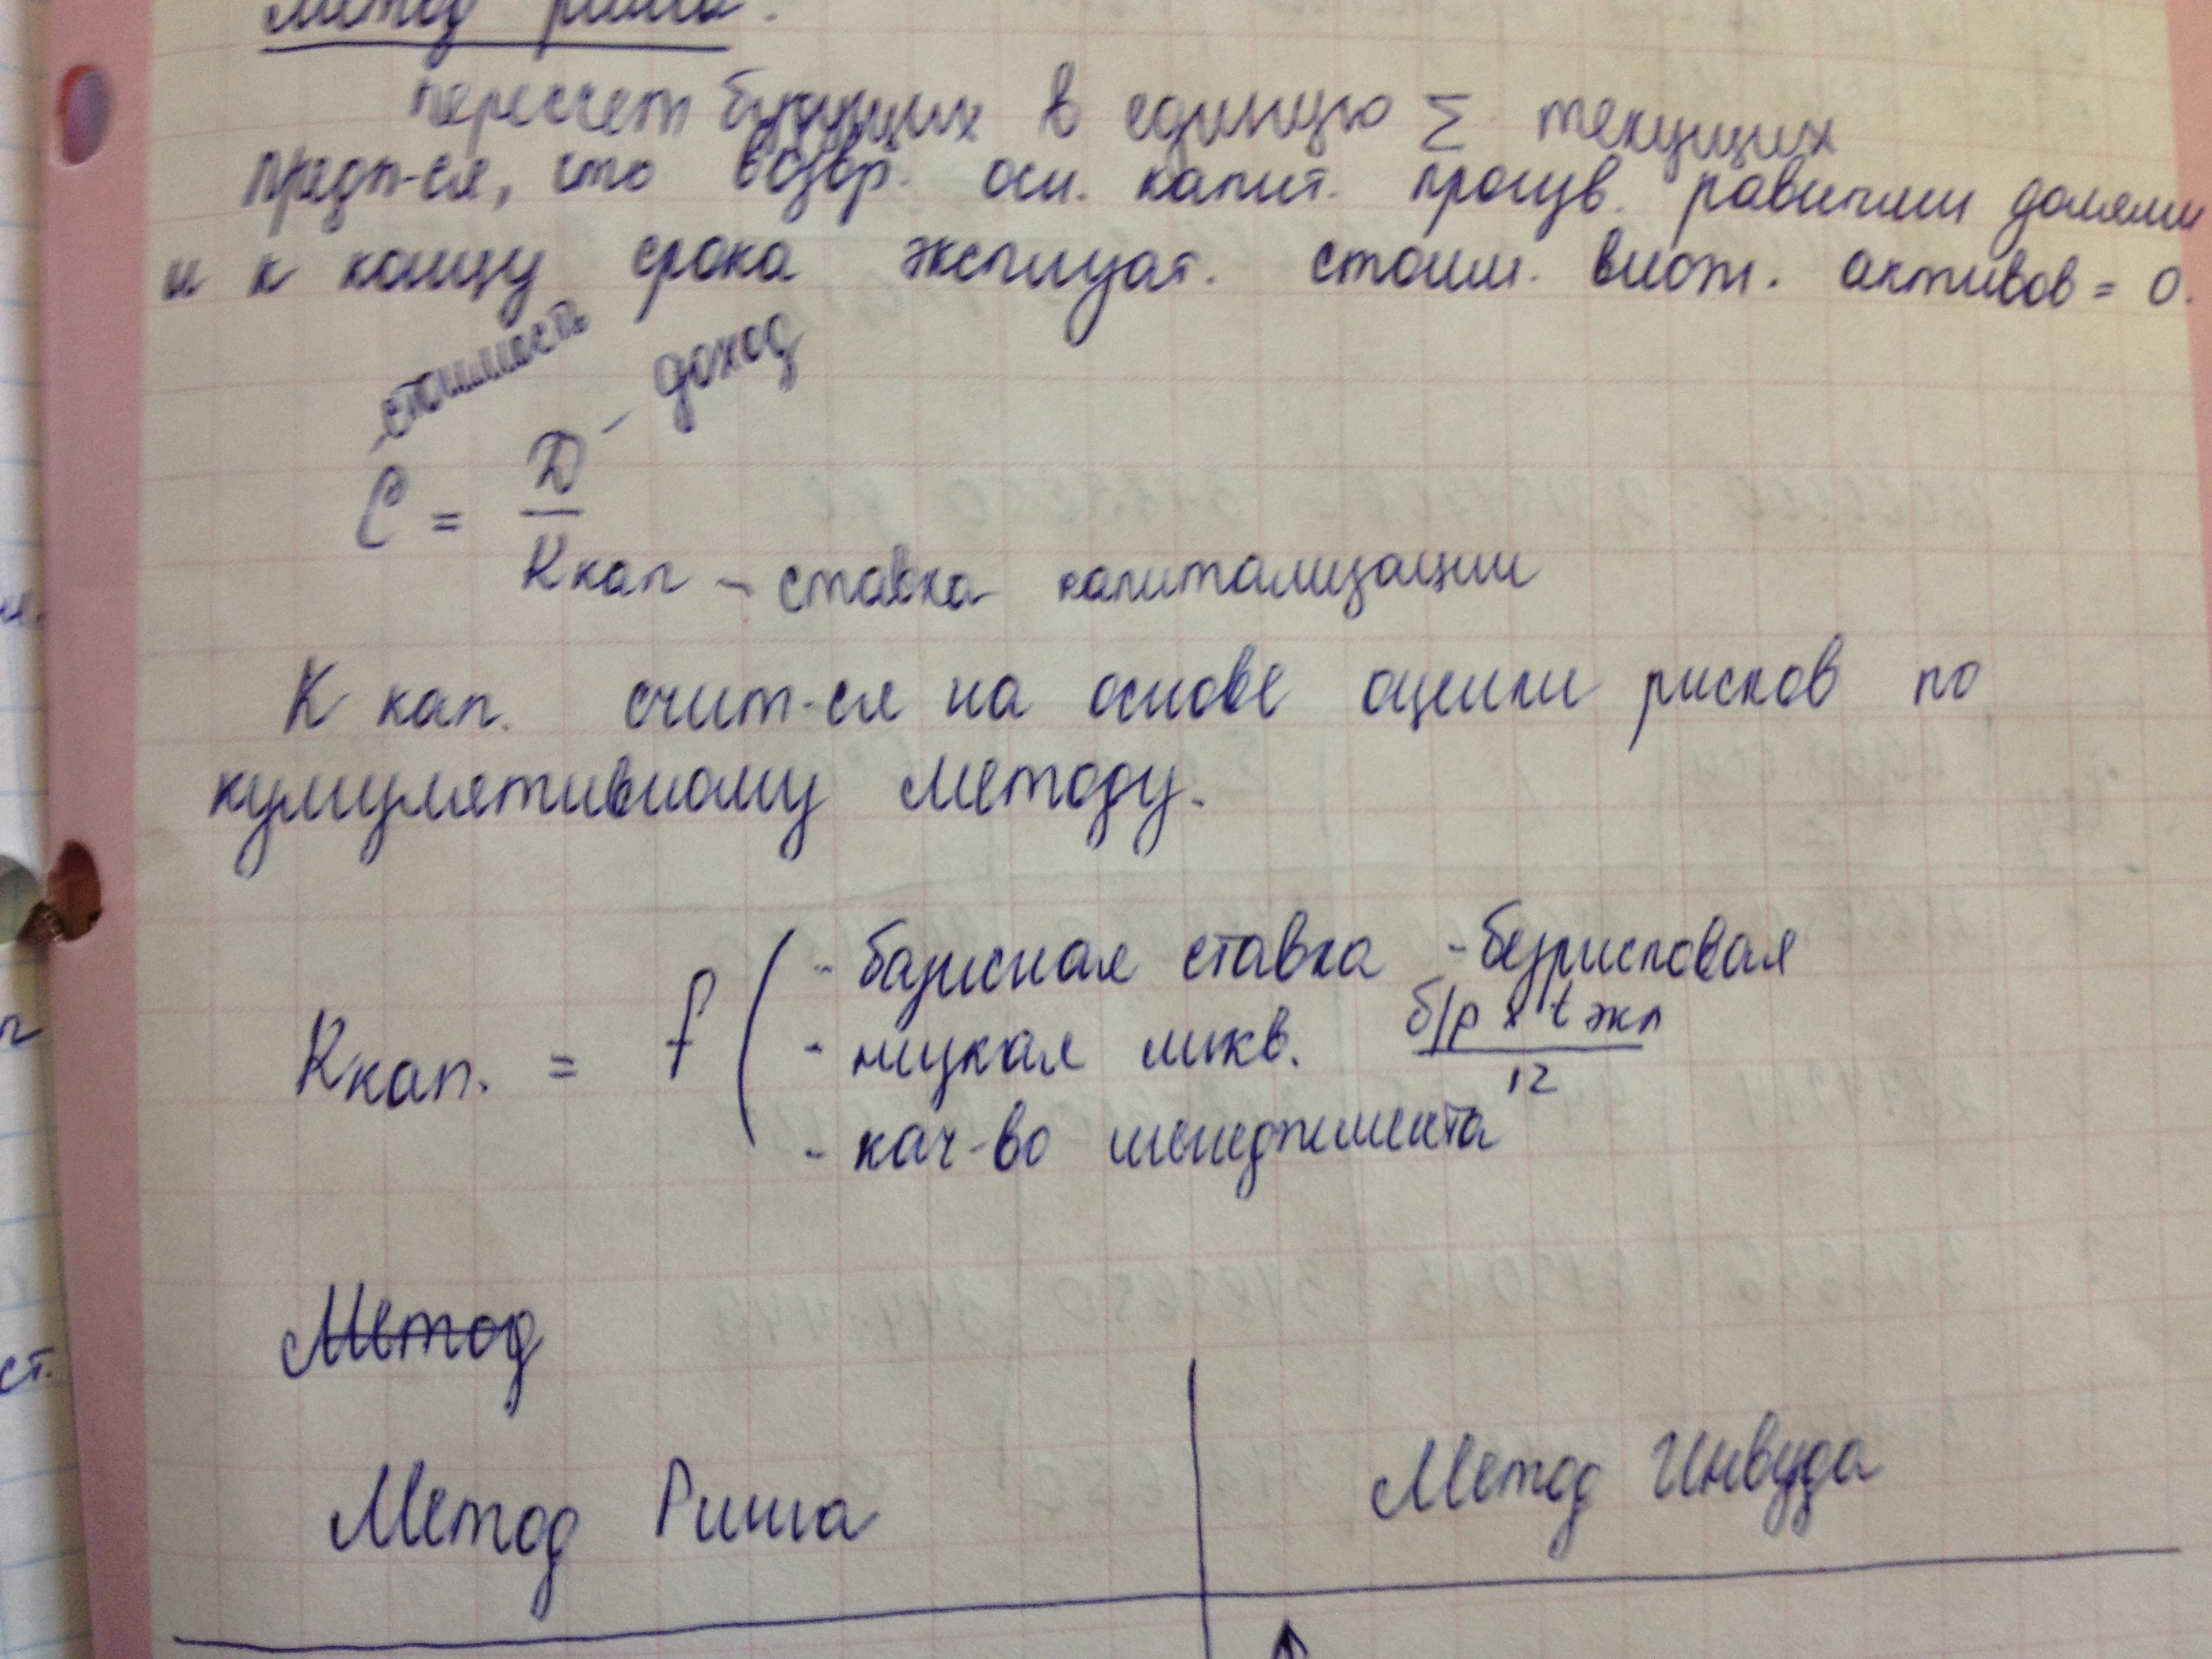 Метод ринга.
пересчет будущих в единую Σ текущих
предп-ся, что возвр. осн. капит. произв. равными долями
и к концу срока эксплуат. стоим. внеот. активов = 0.
стоимость доход
С = Д
Ккап - ставка капитализации
К кап. счит-ся на основе оценки рисков по
кумулятивному методу.
- базисная ставка - безрисковая
Ккап. = f ( - низкая ликв. б/р x t экп / 12
- кач-во менеджмента
Метод
Метод Ринга
Метод Инвуда
ст.